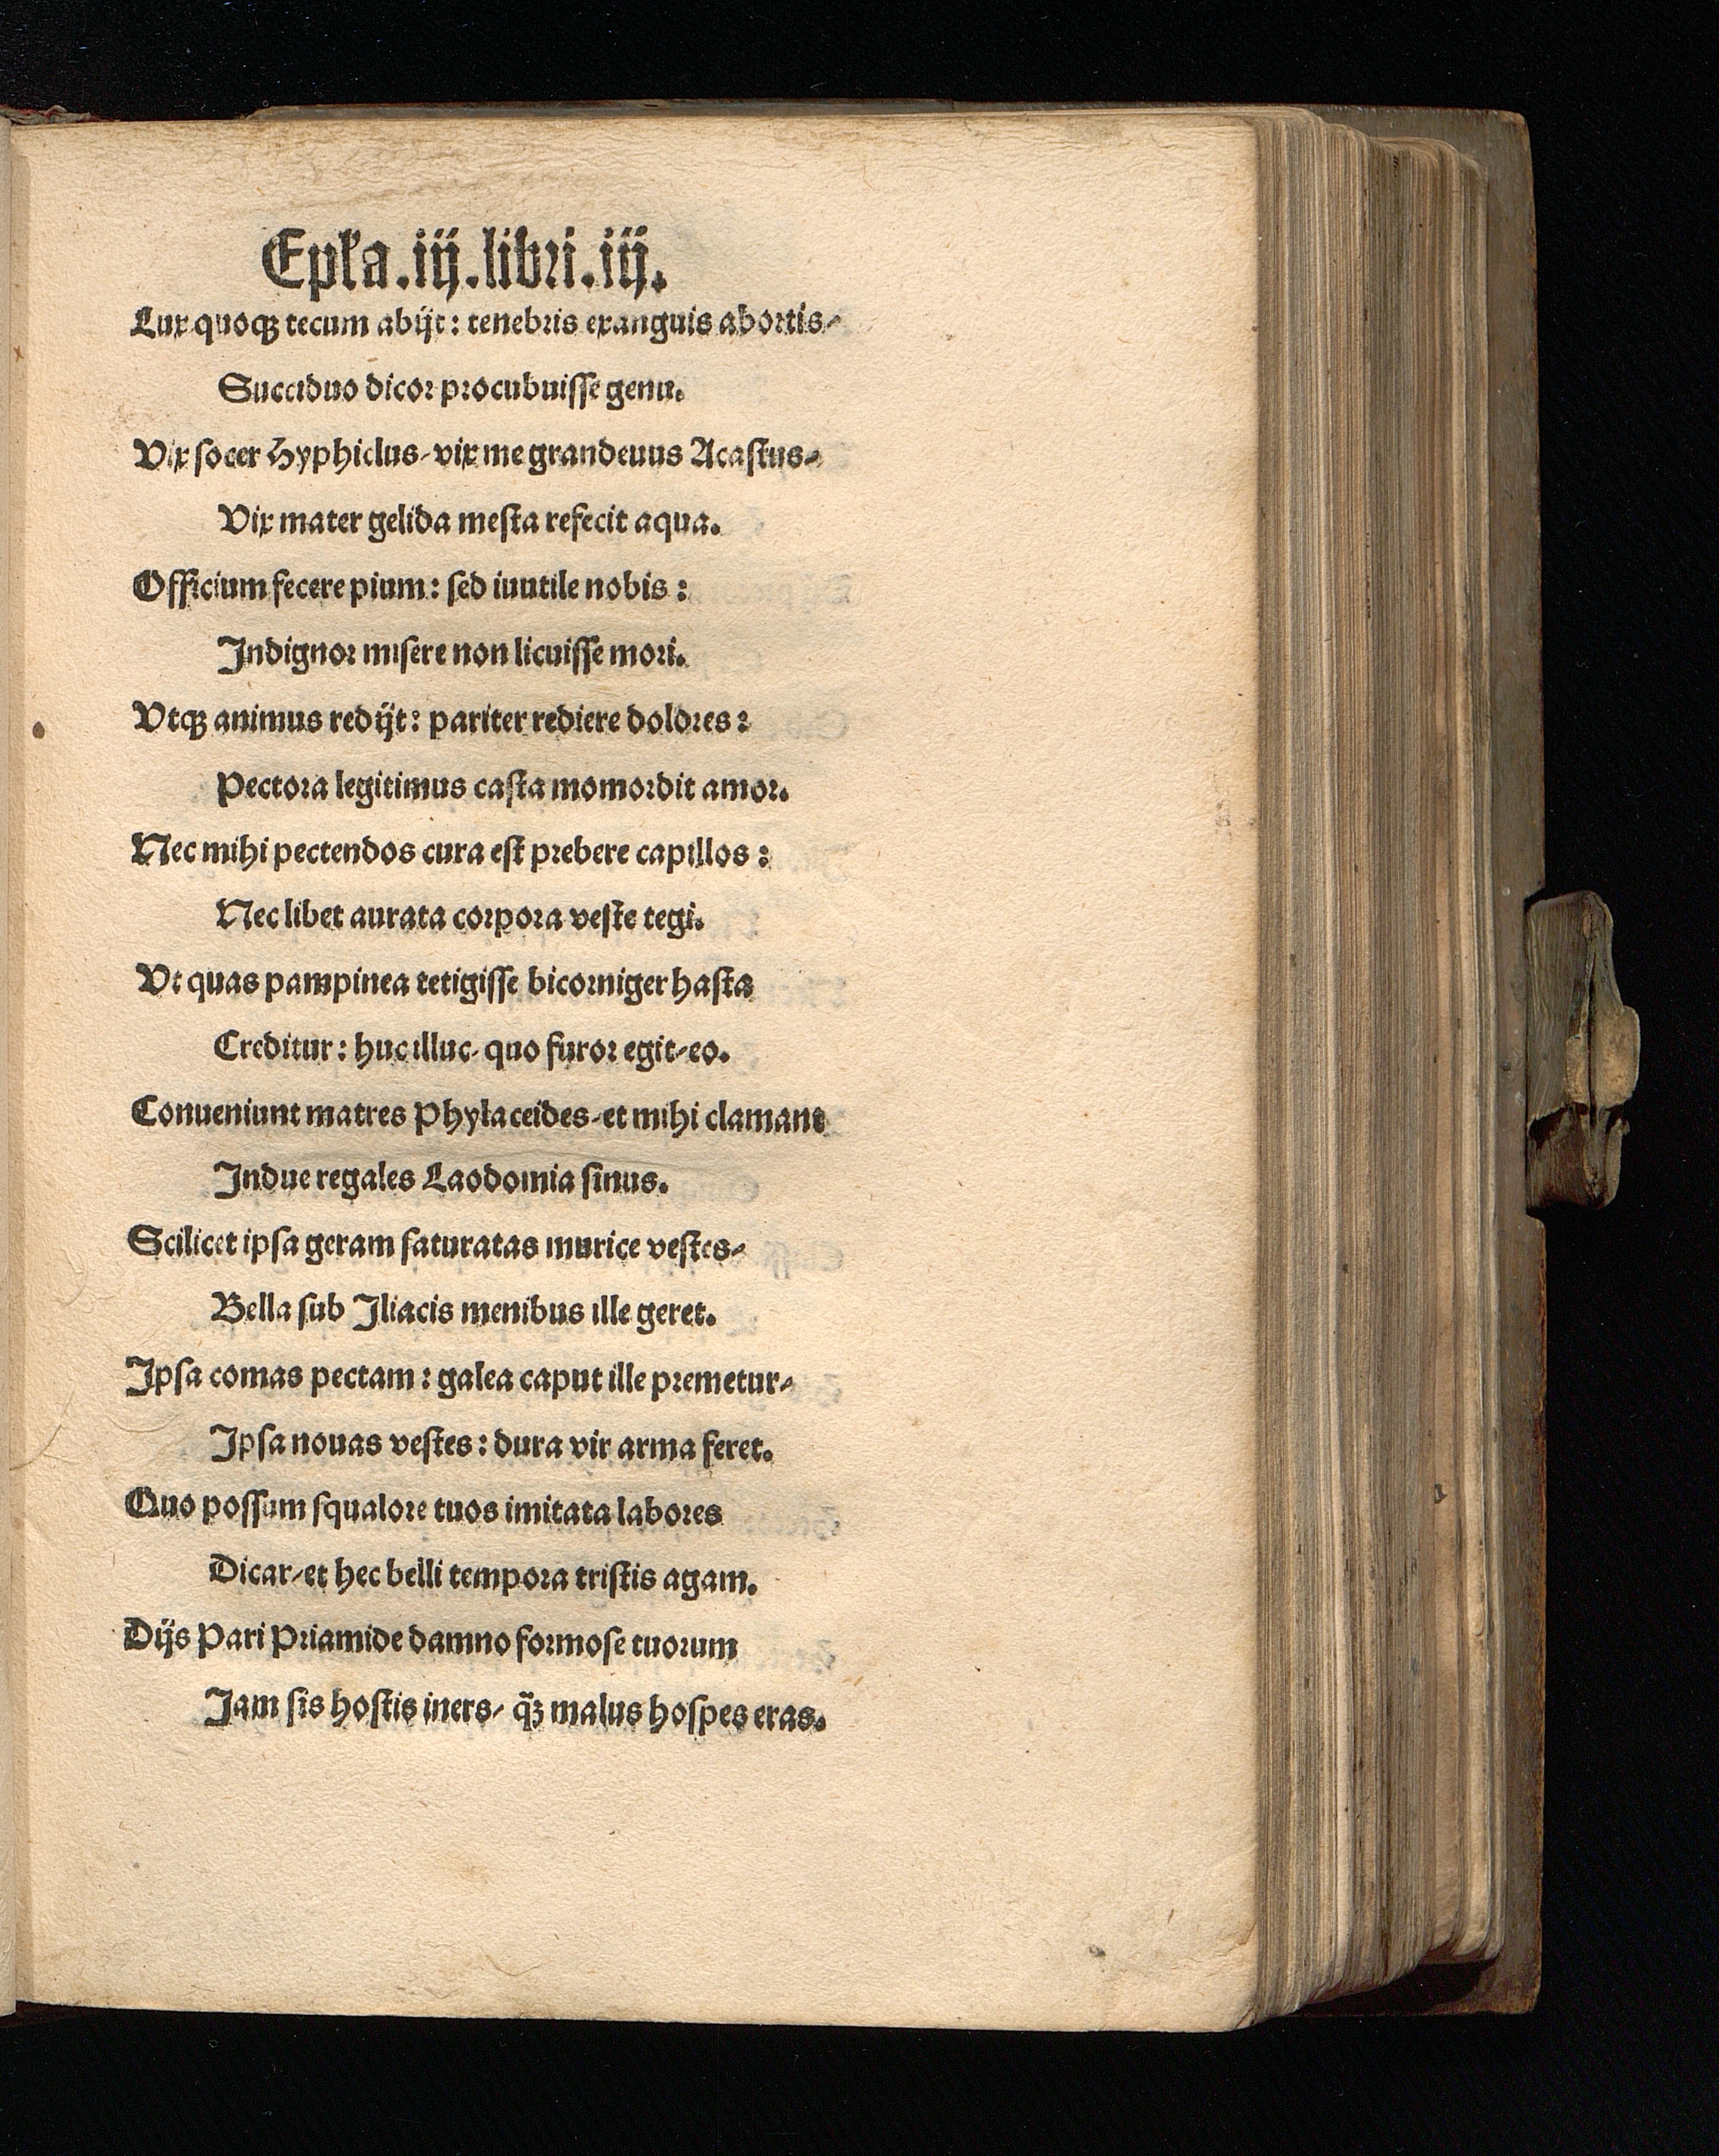 Epła.iij.libri.iij.
Lux quoqꝫ tecum abijt: tenebris exanguis abortis/
Succiduo dicor procubuiſſe genu.
Vix ſocer Hyphiclus/ vix me grandeuus Acaſtus/
Vix mater gelida meſta refecit aqua.
Officium fecere pium: ſed iuutile nobis:
Indignor miſere non licuiſſe mori.
Vtqꝫ animus redijt: pariter rediere dolores:
Pectora legitimus caſta momordit amor.
Nec mihi pectendos cura eſt prebere capillos:
Nec libet aurata corpora veſte tegi.
Vt quas pampinea tetigiſſe bicorniger haſta
Creditur: huc illuc/ quo furor egit/ eo.
Conueniunt matres Phylaceides/ et mihi clamant
Indue regales Laodomia ſinus.
Scilicet ipſa geram ſaturatas murice veſtes/
Bella ſub Iliacis menibus ille geret.
Ipſa comas pectam: galea caput ille premetur/
Ipſa nouas veſtes: dura vir arma feret.
Quo poſſum ſqualore tuos imitata labores
Dicar/ et hec belli tempora triſtis agam.
Dijs Pari Priamide damno formoſe tuorum
Iam ſis hoſtis iners/ q̈ꝫ malus hoſpes eras.